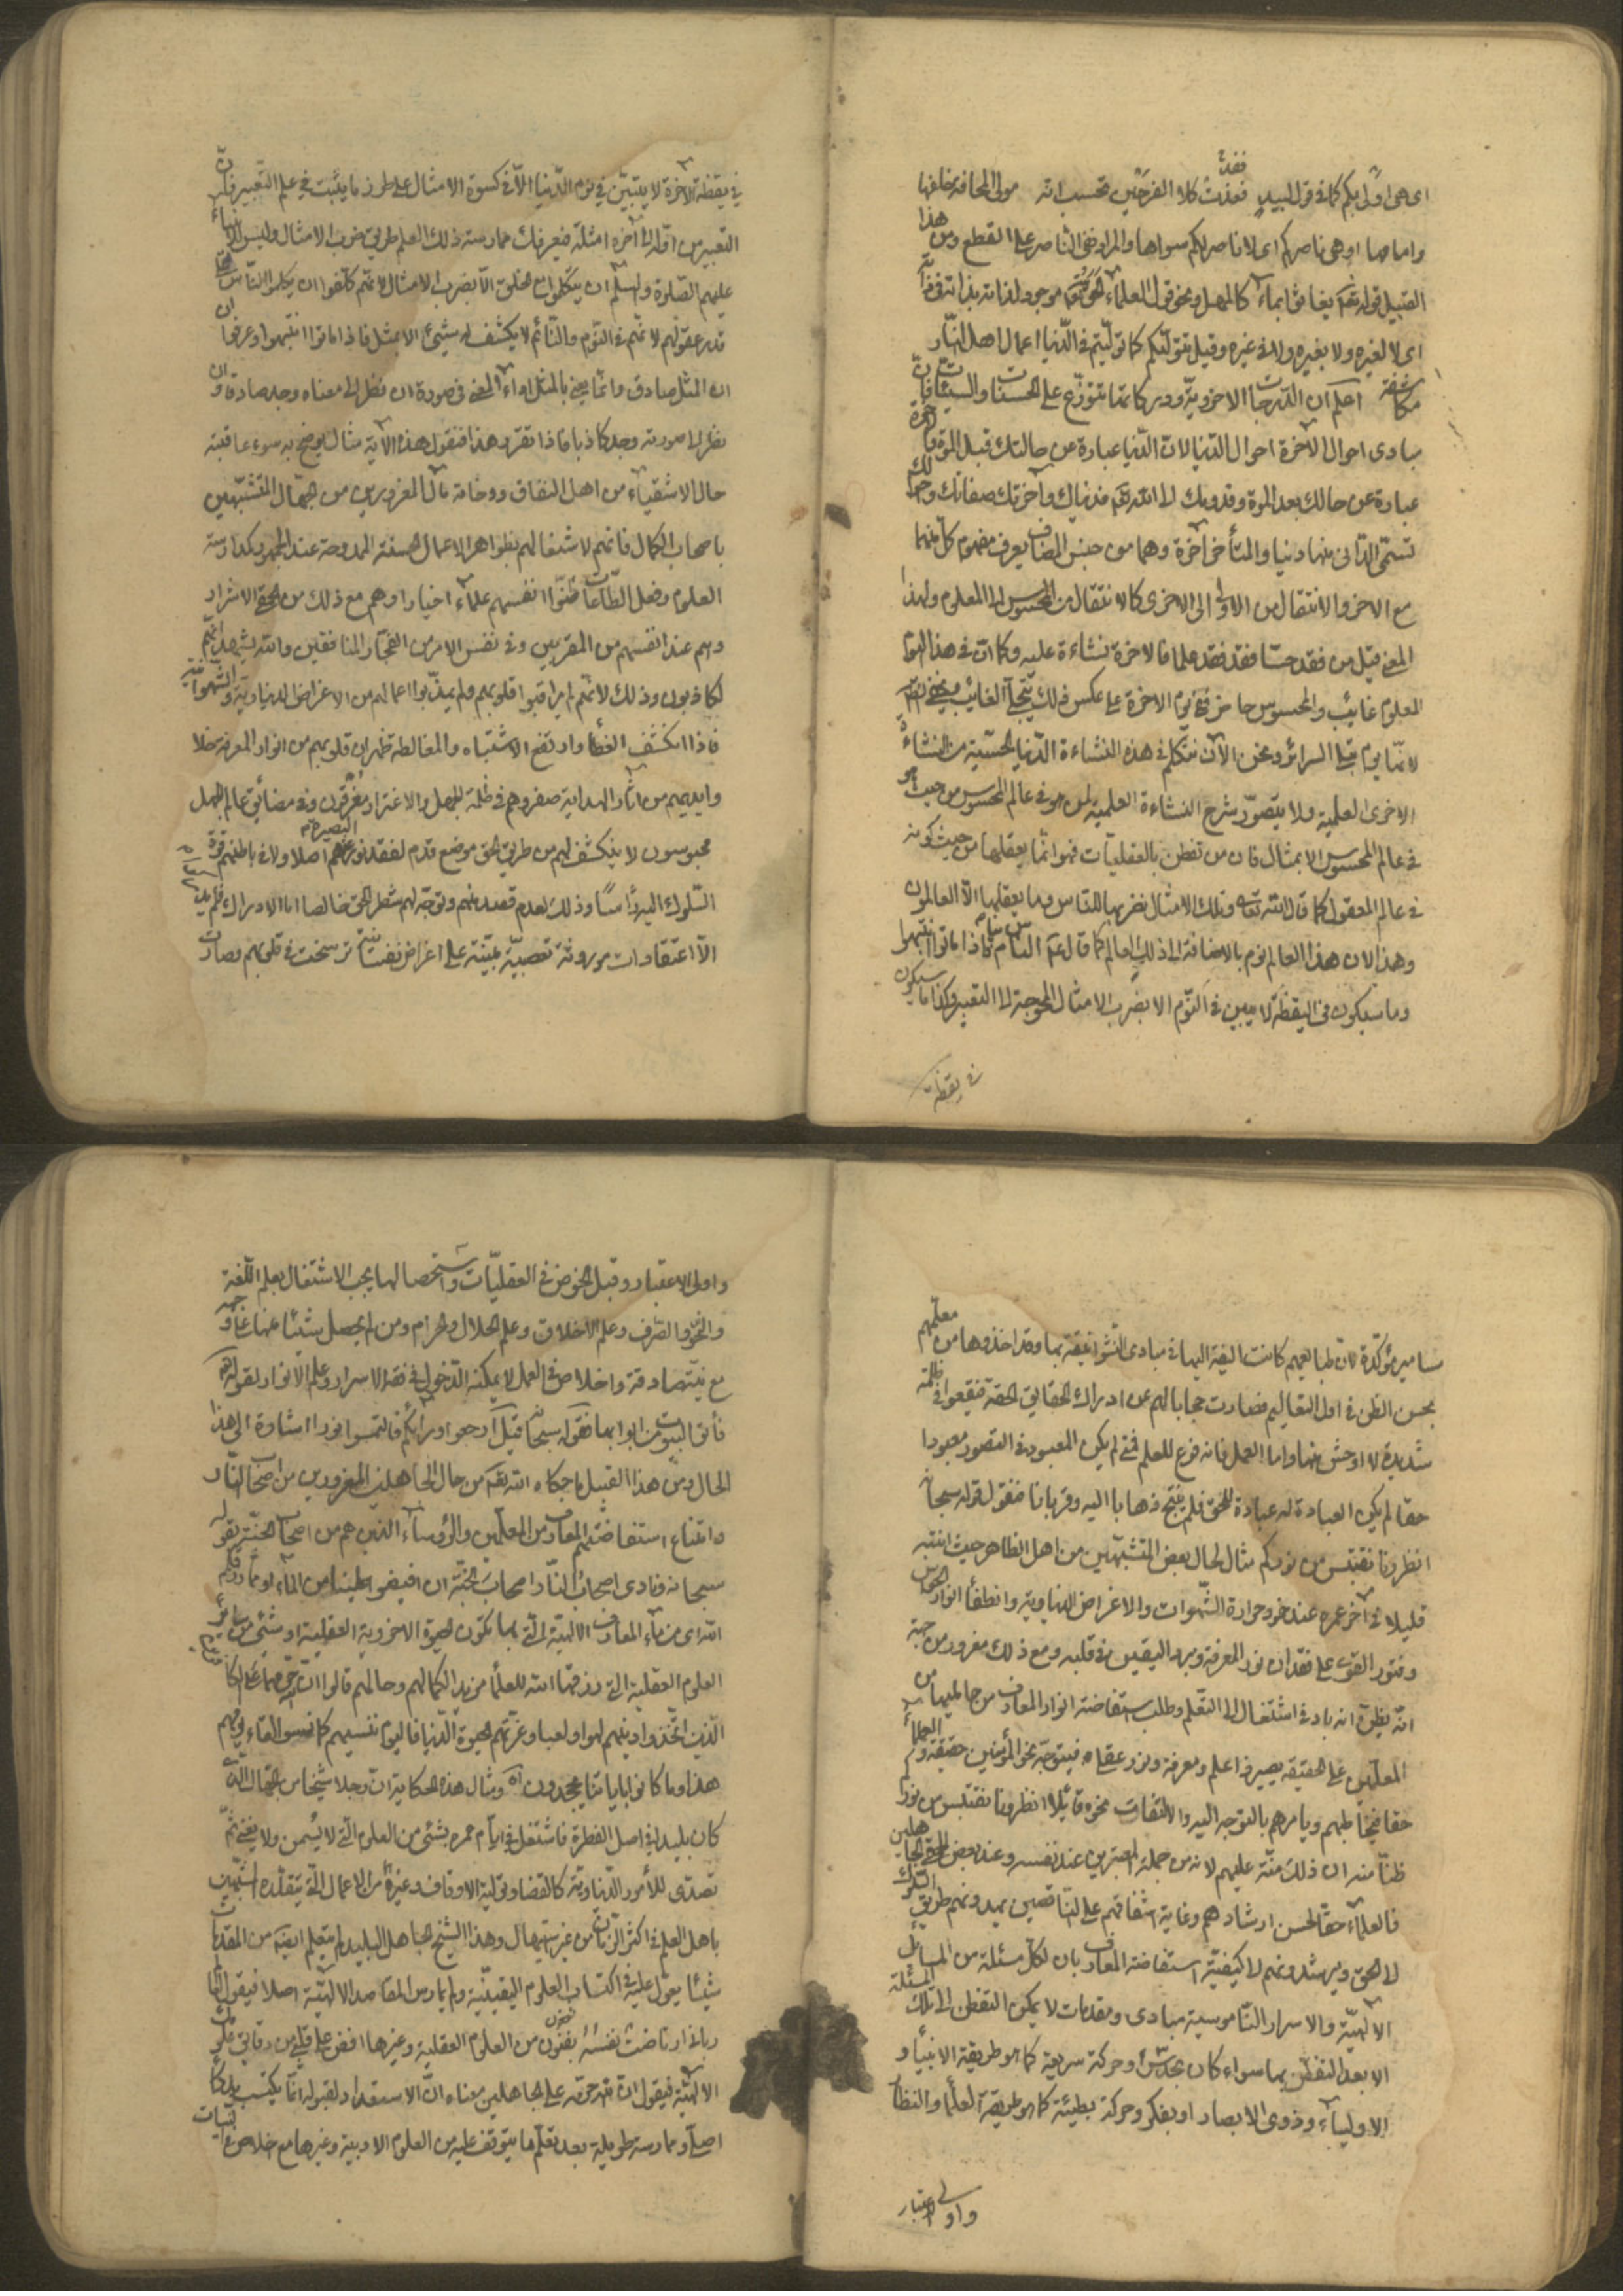 اى هى اولى بكم كما فى قول لبيد فغدت كلا الفرجين تحسب انه مولى المخافة خلفها
وامامها او هى ناصركم اى لا ناصر لكم سواها والمراد نفى الناصر على القطع ومن هذا
القبيل قوله تع يغاثوا بماء كالمهل ونحو قول العلماء الحق تع موجود لذاته بذاته فى ذاته
اى لا لغيره ولا بغيره ولا فى غيره وقيل تتولّيكم كما تولّيتم فى الدّنيا اعمال اهل النّار
مكاشفة اعلم ان الدّرجات الاخرويّة ودركاتها تتوزّع على الحسنات والسيّئات فانّ
مبادى احوال الآخرة احوال الدّنيا لان الدّنيا عبارة عن حالتك قبل الموت والآخرة
عبارة عن حالك بعد الموت وقدومك الى الله تع فدنياك وآخرتك صفاتك واحوالك
تسمّى الدّانى منها دنيا والمتأخّر آخرة وهما من جنس المضاف يعرف مفهوم كلّ منهما
مع الاخر والانتقال من الاولى الى الاخرى كالانتقال من المحسوس الى المعلوم ولهذا
المعنى قيل من فقد حسّا فقد فقد علما فالاخرة نشاءة عليه وكما ان فى هذا اليوم
المعلوم غائب والمحسوس حاضر ففى يوم الاخرة على عكس ذلك يتجلّى الغائب
لانّها يوم تبلى السرائر ونحن الآن نتكلم فى هذه النشاءة الدّنيا الحسّية من النشاءة
الاخرى العلمية ولا يتصوّر شرح النشاءة العلمية لمن هو فى عالم المحسوس من حيث هو
فى عالم المحسوس الا بمثال فان من تفطن بالعقليات فهو انّما يعقلها من حيث كونه
فى عالم المعقول كما قال الله تعالى وتلك الامثال نضربها للناس وما يعقلها الّا العالمون
وهذا لان هذا العالم نوم بالاضافة الى ذلك العالم كما قال عم النّاس نيام فاذا ماتوا انتبهوا
وما سيكون فى اليقظة لا يبين فى النّوم الا بضرب الامثال المحوجة الى التعبير وكذا ما سيكون
فى يقظة
فى يقظة الآخرة لا يتبيّن فى نوم الدّنيا الّا فى كسوة الامثال على طرز ما يثبت فى علم التعبير فانّ
التعبير من اوّله الى آخره امثلة يعرفك ممارسته ذلك العلم طريق ضرب الامثال وليس للانبياء
عليهم الصّلوة والسّلام ان يتكلّموا مع الخلق الّا بضرب الامثال لانّهم كلّفوا ان يكلّموا النّاس على
قدر عقولهم لانّهم فى النّوم والنّائم لا يكشف له شيئ الا بمثل فاذا ماتوا انتبهوا وعرفوا ان
ان المثل صادق وانّما يعنى بالمثل اداء المعنى فى صورة ان نظر الى معناه وجد صادقا وان
نظر الى صورته وجد كاذبا فاذا تقرر هذا فنقول هذه الآية مثال يوضح به سوء عاقبة
حال الاشقياء من اهل النفاق ووخامة مآل المغرورين من جهّال المتشبّهين
باصحاب الكمال فانّهم لاشتغالهم بظواهر الاعمال الحسنة الممدوحة عند الجمهور كمدارسة
العلوم وفعل الطّاعات ظنّوا انفسهم علماء اخيارا وهم مع ذلك من الاشرار
وهم عند انفسهم من المقربين وفى نفس الامر من الفجّار المنافقين والله يشهد انّهم
لكاذبون وذلك لانّهم لم يراقبوا قلوبهم ولم يهذّبوا اعمالهم من الاغراض الدنياوية والشّهوانيّة
فاذا انكشف الغطأ وارتفع الاشتباه والمغالطة ظهر ان قلوبهم من انوار المعرفة خلاء
وايديهم من آثار الهداية صفر وهم فى ظلمة الجهل والاغترار مغرقون وفى مضائق عالم الجهل
محبوسون لا ينكشف لهم من طريق الحق موضع قدم لفقد نور البصيرة عنهم اصلا ولا فى باطنهم قوة
السّلوك اليه رأسًا وذلك لعدم قصد منهم وتوجّه لهم شطر الحق خالصا اما الادراك فلم يك
الّا اعتقادات موروثة تعصبيّة مبتنية على اغراض نفسانيّة ترسخت فى قلوبهم وصارت
مسامير مؤكّدة لانّ طبايعهم كانت اليفة اليها فى مبادى النّشو انيقة بها وقد اخذوها من معلّمهم
بحسن الظن فى اول التعاليم فصارت حجابا لهم عن ادراك الحقايق الحقة فيقعوا فى ظلمة
شديدة لا اوحش منها واما العمل فانه فرع للعلم فمتى لم يكن المعبود فى التصور معبودا
حقا لم يكن العبادة له عبادة للحق فلم ينتج ذهابا اليه وقربانا فنقول قوله سبحانه
انظرونا نقتبس من نوركم مثال لحال بعض المتشبّهين من اهل الظاهر حيث انتبه
قليلا فى آخر عمره عند خمود حرارة الشّهوات والاغراض الدنياوية وانطفأ انوار الحواس
وفتور القوى على فقدان نور المعرفة وبرد اليقين فى قلبه ومع ذلك مغرور من جهة
انّه يظن انه بادنى اشتغال الى التعلم وطلب استفاضة انوار المعارف من حامليها من
المعلّمين على الحقيقة يصير ذا علم ومعرفة ونور عقله فيتوجّه نحو المؤمنين حقيقة والعلماء
حقا فيخاطبهم ويأمرهم بالتوجه اليه والالتفات نحوه قائلا انظرونا نقتبس من نوركم
ظنّا منه ان ذلك منّة عليهم لانه من جملة المعتبرين عند نفسه وعند بعض الجاهلين
فالعلمآء حقا لحسن ارشادهم وغاية اشفاقهم على النّاقصين يهدونهم طريق السّلوك
الى الحق ويرشدونهم الى كيفيّة استفاضة المعارف بان لكل مسئلة من المسائل
الالهيّة والاسرار النّاموسية مبادى ومقدمات لا يمكن التفطن الى تلك المسئلة
الا بعد التفطن بها سواء كان بحدس او حركة سريعة كما هو طريقة الانبيأ و
الاوليآء وذوى الابصار او بفكر وحركة بطيئة كما هو طريقة العلمأ والنظّار
واولى الاعتبار
واولى الاعتبار وقبل الخوض فى العقليّات واستحصالها يجب الاشتغال بعلم اللّغة
والنحو والصّرف وعلم الاخلاق وعلم الحلال والحرام ومن لم يحصل شيئًا منها
مع نيّة صادقة واخلاص فى العمل لا يمكنه الدّخول فى فقه الاسرار وعلم الانوار لقوله تع
فأتوا البيوت من ابوابها فقوله سبحانه قيل ارجعوا ورائكم فالتمسوا نورا اشارة الى هذا
الحال ومن هذا القبيل ما حكاه الله تع من حال الجاهلين المغرورين من اصحاب النّار
وامتناع استفاضتهم المعارف من المعلّمين والرؤساء الذين هم من اصحاب الجنّة بقوله
سبحانه ونادى اصحاب النّار اصحاب الجنّة ان افيضوا علينا من الماء او ممّا رزقكم
الله اى من ماء المعارف الالهيّة الّتى بها يكون الحيوة الاخروية العقلية او شيئ من ساير
العلوم العقلية التى رزقها الله للعلمأ مزيدا لكمالهم وحالهم قالوا انّ الله حرّمهما على الكافرين
الّذين اتّخذوا دينهم لهوا ولعبا وغرّتهم الحيوة الدّنيا فاليوم ننسيهم كما نسوا لقاء يومهم
هذا وما كانوا باياتنا يجحدون ومثال هذه الحكاية ان رجلا شيخا من الجهال الّذى
كان بليدا فى اصل الفطرة فاشتغل فى ايّام عمره بشئ من العلوم الّتى لا يسمن ولا يغنى ثمّ
تصدّى للأمور الدّنياويّة كالقضا وتولية الاوقاف وغيره من الاعمال الّتى يتقلّده المتشبّهين
باهل العلم فى اكثر الزّمان من غير استيهال وهذا الشيخ الجاهل البليد لم يتعلم ايضا من المقدمات
شيئًا يعوّل عليه فى اكتساب العلوم اليقينيّة ولم يمارس المقاصد الالهيّة اصلا فيقول
ارتاضت نفسه بفنون من العلوم العقلية وغيرها افض على قلبى من دقايق علومك
الالهيّة فيقول ان الله حرّمه على الجاهلين معناه انّ الاستعداد لقبوله انّما يكتسب بذكاء
اصلى وممارسة طويلة بعد تعلّم ما يتوقف عليه من العلوم الادبية وغيرها مع خلاص نيّات